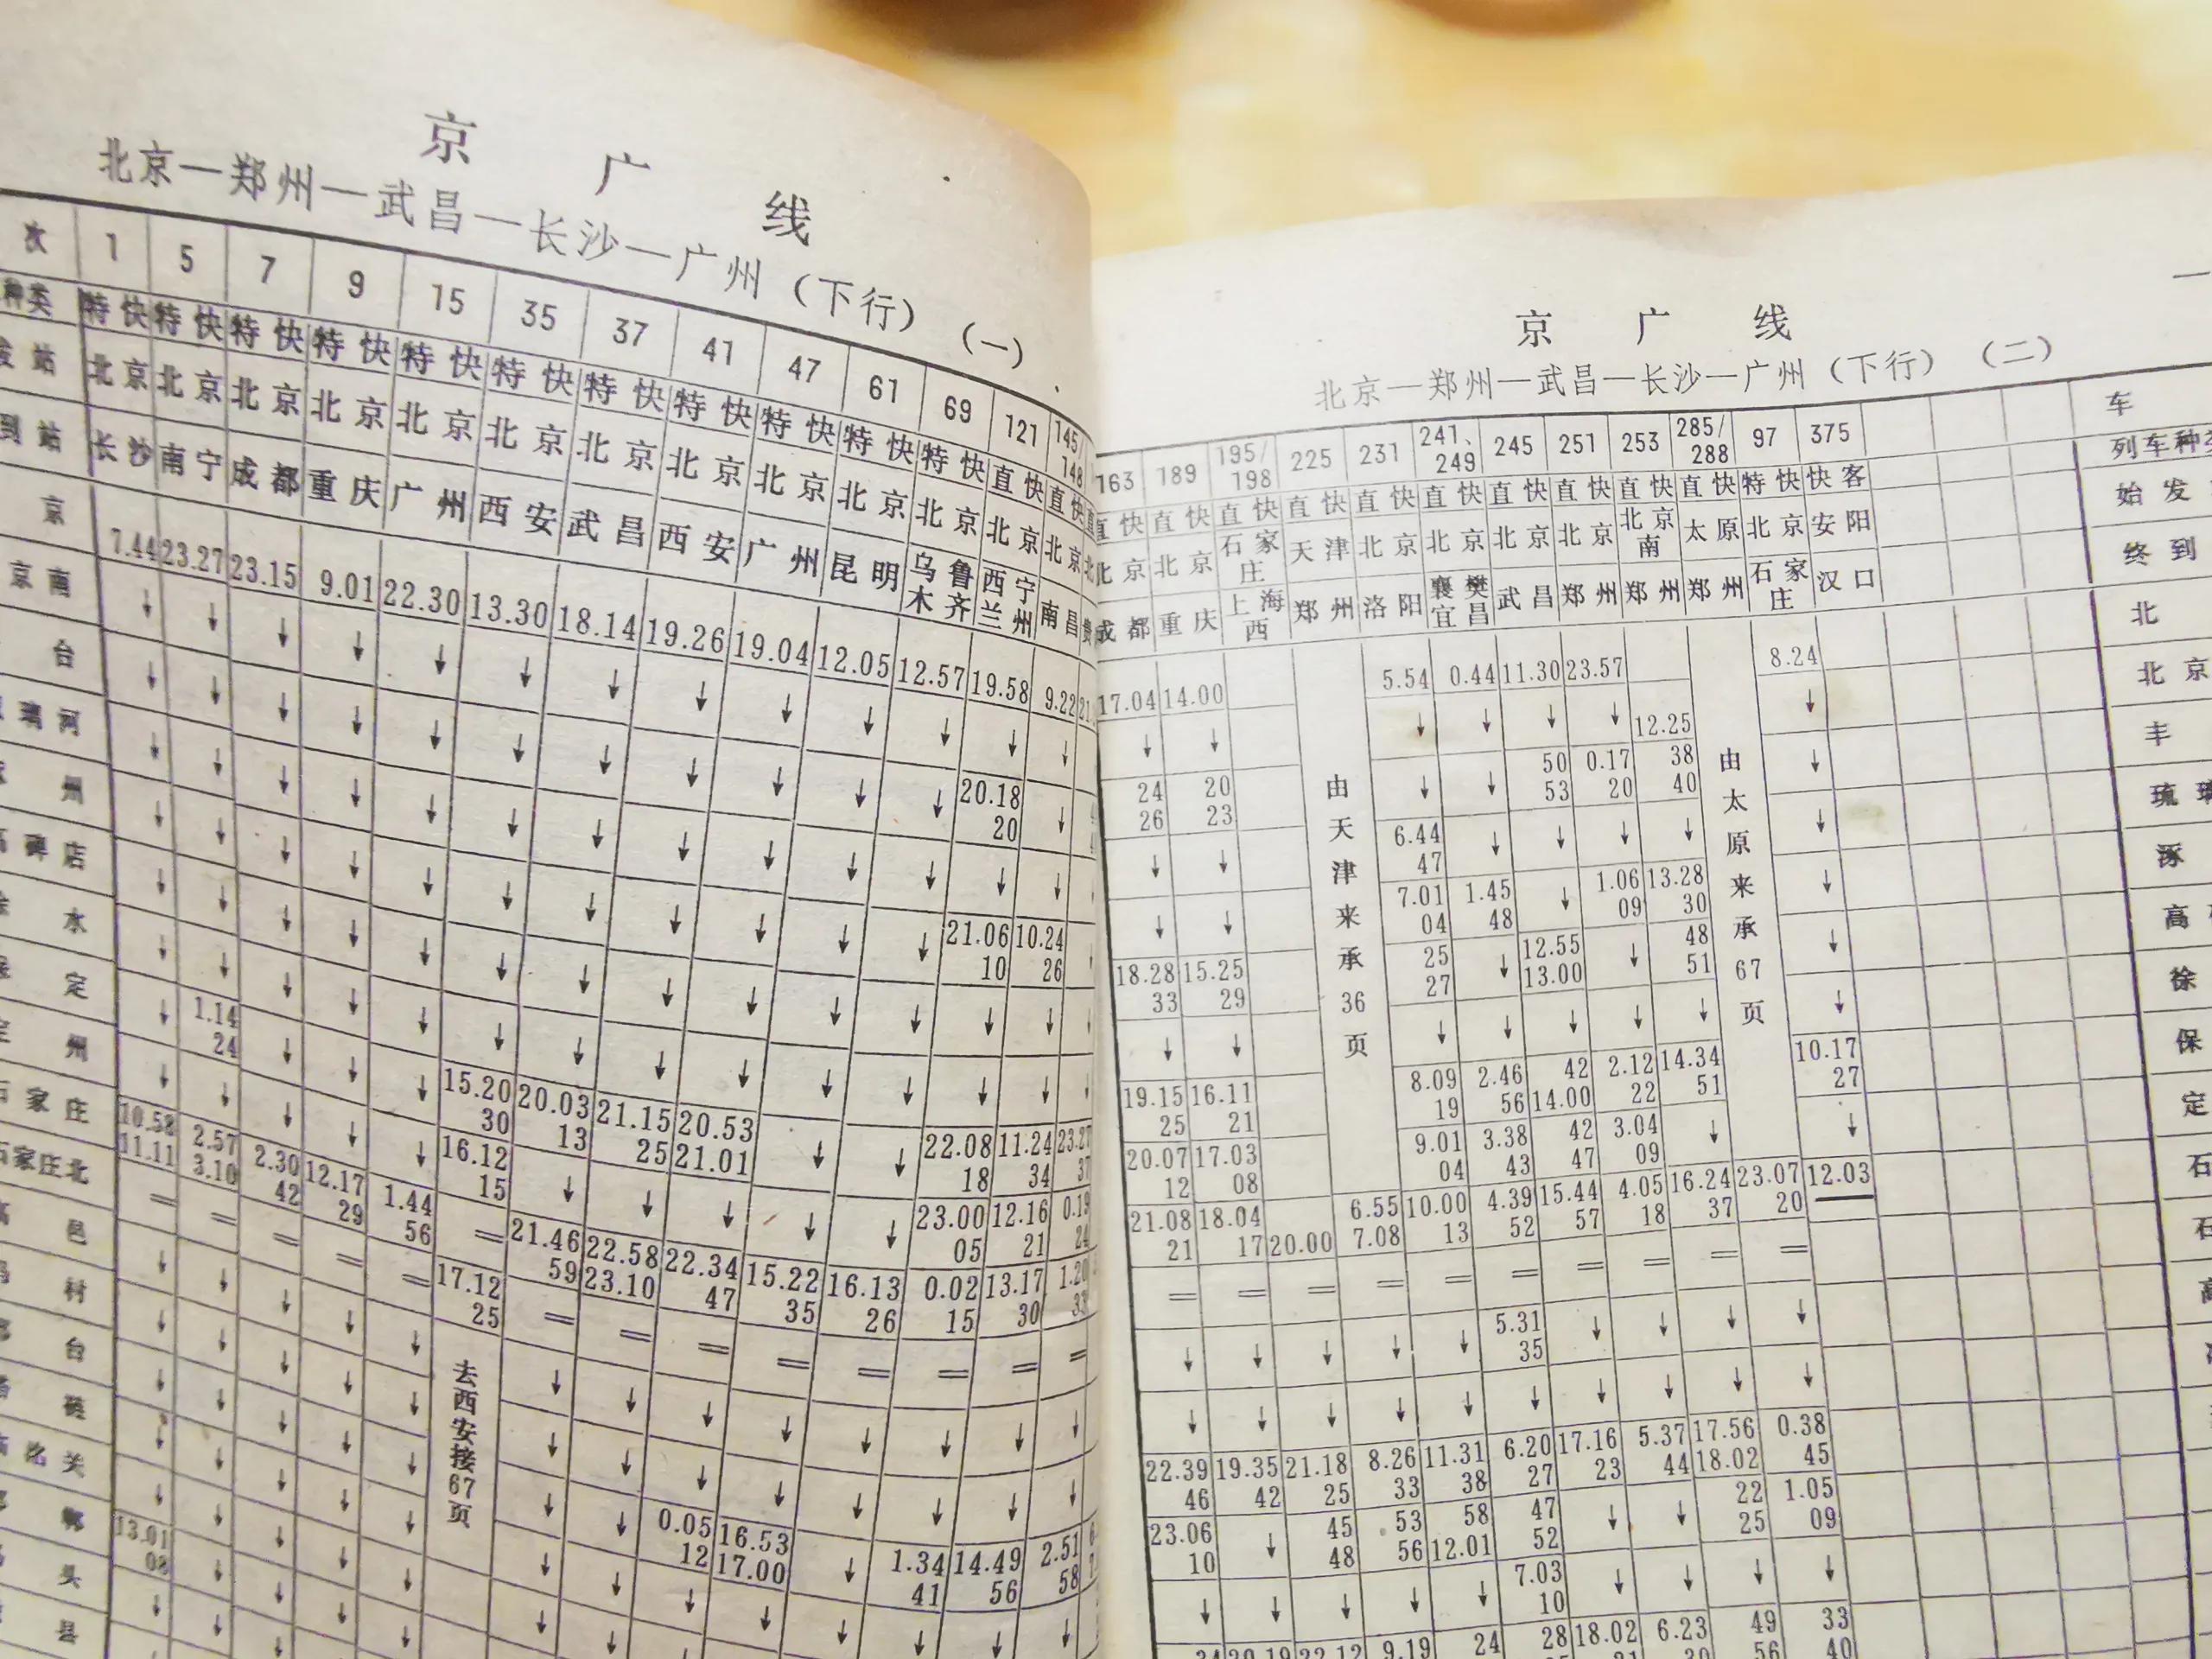 京 广 线
北京—郑州—武昌—长沙—广州（下行）（一）
次 1 5 7 9 15 35 37 41 47 61 69 121 145/148
种类 特快 特快 特快 特快 特快 特快 特快 特快 特快 特快 特快 直快 直快
站 北京 北京 北京 北京 北京 北京 北京 北京 北京 北京 北京 北京 北京
到站 长沙 南宁 成都 重庆 广州 西安 武昌 西安 广州 昆明 乌鲁木齐 西宁兰州 南昌
京 7.44 23.27 23.15 9.01 22.30 13.30 18.14 19.26 19.04 12.05 12.57 19.58 9.22
京南 ↓ ↓ ↓ ↓ ↓ ↓ ↓ ↓ ↓ ↓ ↓ ↓
台 20.18
20
璃河
州
碑店 21.06 10.24
10 26
水
定 1.14 15.20 20.03 21.15 20.53 22.08 11.24 23.27
24 30 13 25 21.01 18 34 37
州 16.12 23.00 12.16 0.19
15 05 21 24
石家庄 10.58 2.57 2.30 12.17 1.44 17.12 21.46 22.58 22.34 15.22 16.13 0.02 13.17 1.20
11.11 3.10 42 29 56 25 59 23.10 47 35 26 15 30 33
石家庄北 = = = = = = = = = = = = =
邑
村
台 0.05 16.53 1.34 14.49 2.51
12 17.00 41 56 58
关
郸 13.01
08
头
县
去西安接67页
京 广 线
北京—郑州—武昌—长沙—广州（下行）（二）
163 189 195/198 225 231 241、249 245 251 253 285/288 97 375 车
直快 直快 直快 直快 直快 直快 直快 直快 直快 直快 特快 快客 列车种类
北京 北京 石家庄 天津 北京 北京 北京 北京 北京南 太原 北京 安阳 始发
成都 重庆 上海西 郑州 洛阳 襄樊宜昌 武昌 郑州 郑州 郑州 石家庄 汉口 终到
17.04 14.00 5.54 0.44 11.30 23.57 8.24 北
↓ ↓ ↓ ↓ ↓ ↓ 12.25 ↓ 北京
24 20 50 0.17 38 丰
26 23 53 20 40
6.44 琉璃
47
7.01 1.45 1.06 13.28 涿
04 48 09 30
18.28 15.25 25 12.55 48 高
33 29 27 13.00 51
徐
19.15 16.11 8.09 2.46 42 2.12 14.34 10.17 保
25 21 19 56 14.00 22 51 27
20.07 17.03 9.01 3.38 42 3.04 定
12 08 04 43 47 09
21.08 18.04 6.55 10.00 4.39 15.44 4.05 16.24 23.07 12.03 石
21 17 20.00 7.08 13 52 57 18 37 20
= = = = = = = = = = 石
5.31 高
35
22.39 19.35 21.18 8.26 11.31 6.20 17.16 5.37 17.56 0.38
46 42 25 33 38 27 23 44 18.02 45
23.06 45 53 58 47 22 1.05
10 48 56 12.01 52 25 09
7.03
10
20.19 22.12 9.19 24 28 18.02 6.23 49 33
56 40
由天津来承36页
由太原来承67页